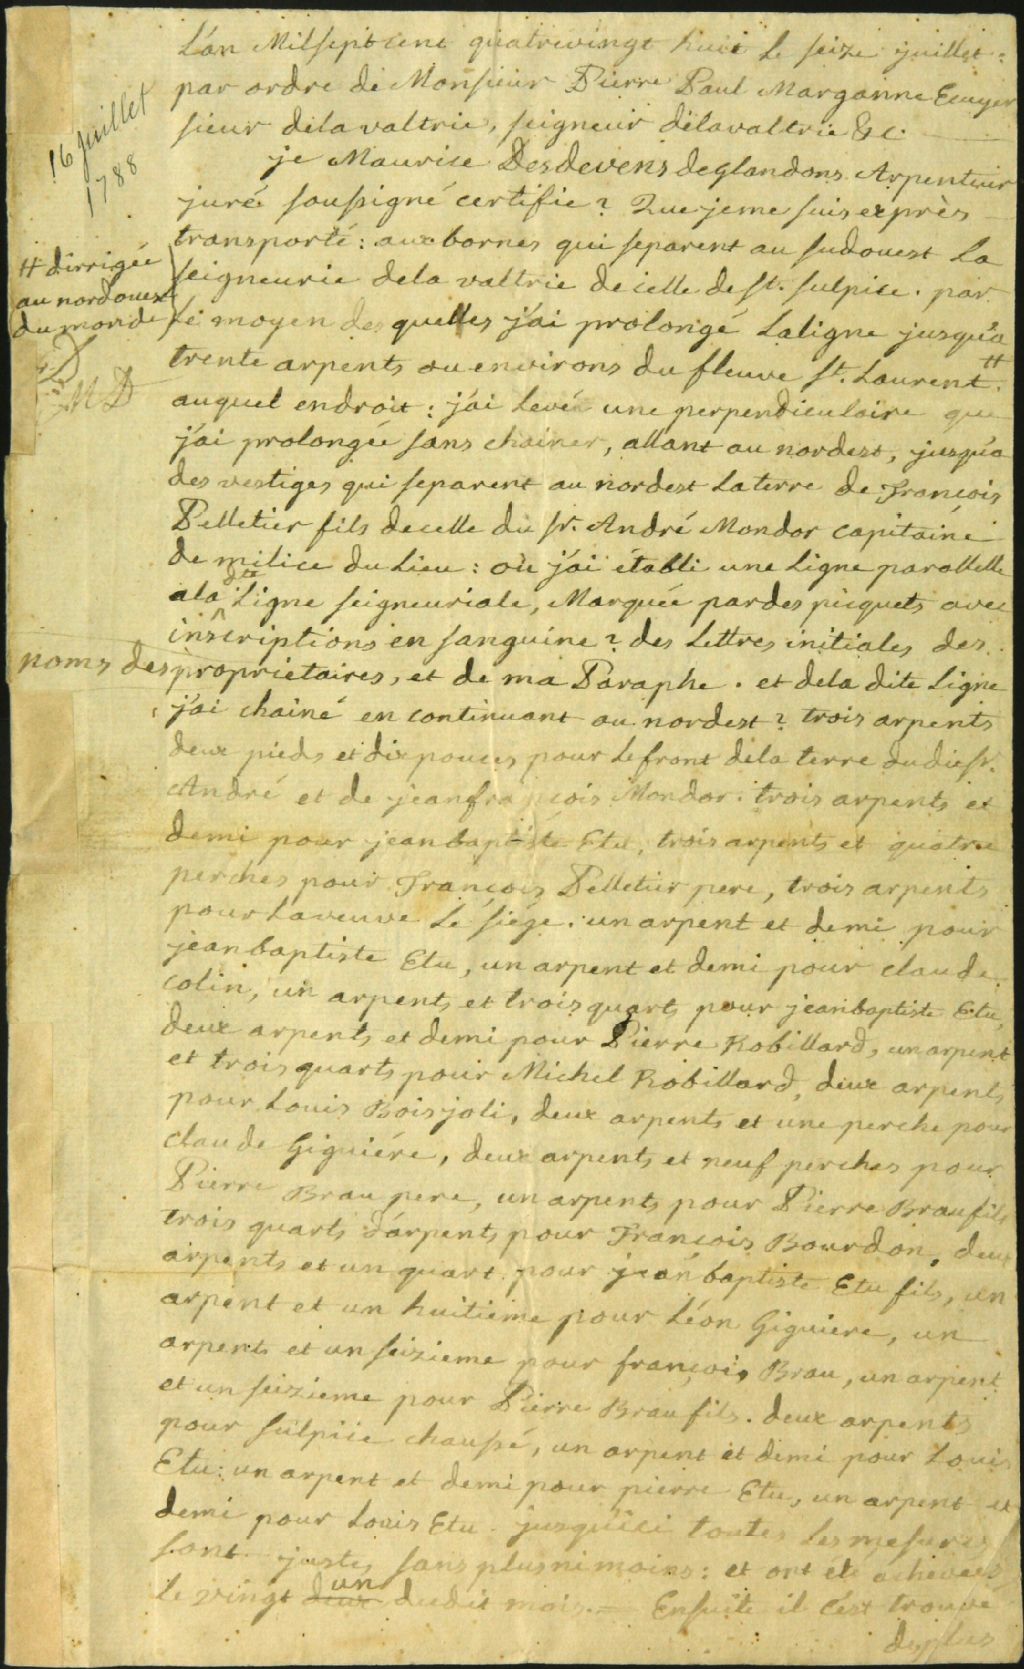 L'an Milsept cent quatrevingt huit le seize juillet.
par ordre de Monsieur Pierre Paul Marganne Ecuyer
sieur delavaltrie, seigneur delavaltrie &c.
16 juillet
1788
je Maurice Desdevens deglandons Arpenteur
juré soussigné certifie? Que jeme suis exprès
transporté: aux bornes qui separent au sudouest La
seigneurie dela valtrie de celle de St. sulpice. par
Le moyen des quelles j'ai prolongé Laligne jusqu'a
# dirrigée
au nordouest
du monde
MD
trente arpents ou environs du fleuve St. Laurent #.
auquel endroit: j'ai Levée une perpendiculaire que
j'ai prolongée sans chainer, allant au nordest, jusqu'a
des vestiges qui separent au nordest Laterre de François
Pelletier fils decelle du Sr. André Mondor capitaine
de milice du Lieu: où j'ai établi une Ligne parallelle
ala dte Ligne seigneuriale, Marquée pardes picquets avec
inscriptions en sanguine? des Lettres initiales des
noms des propriétaires, et de ma Paraphe. et dela dite Ligne
j'ai chainé en continuant au nordest? trois arpents
deux pieds et dix pouces pour Lefront dela terre dudit Sr.
André et de jeanfrançois Mondor. trois arpents et
demi pour jeanbaptiste Etu, trois arpents et quatre
perches pour François Pelletier pere, trois arpents
pour Laveuve Le siége. un arpent et demi pour
jeanbaptiste Etu, un arpent et demi pour claude
colin, un arpents et trois quarts pour jeanbaptiste Etu,
deux arpents et demi pour Pierre Robillard, un arpent
et trois quarts pour Michel Robillard, deux arpents
pour Louis Boisjoli, deux arpents et une perche pour
claude Giguiére, deux arpents et neuf perches pour
Pierre Brau pere, un arpents pour Pierre Brau fils
trois quarts d'arpents pour François Bourdon, deux
arpents et un quart pour jean baptiste Etu fils, un
arpent et un huitieme pour Léon Giguiere, un
arpents et un seizieme pour françois Brau, un arpent
et un seizieme pour Pierre Brau fils. deux arpents
pour sulpice chaussé, un arpent et demi pour Louis
Etu: un arpent et demi pour pierre Etu, un arpent et
demi pour Louis Etu. jusqu'ici toutes Les mesures
sont justes sans plus ni moins: et ont été achevées
le vingt deux un dudit mois. = Ensuite il c'est trouvé
deplus